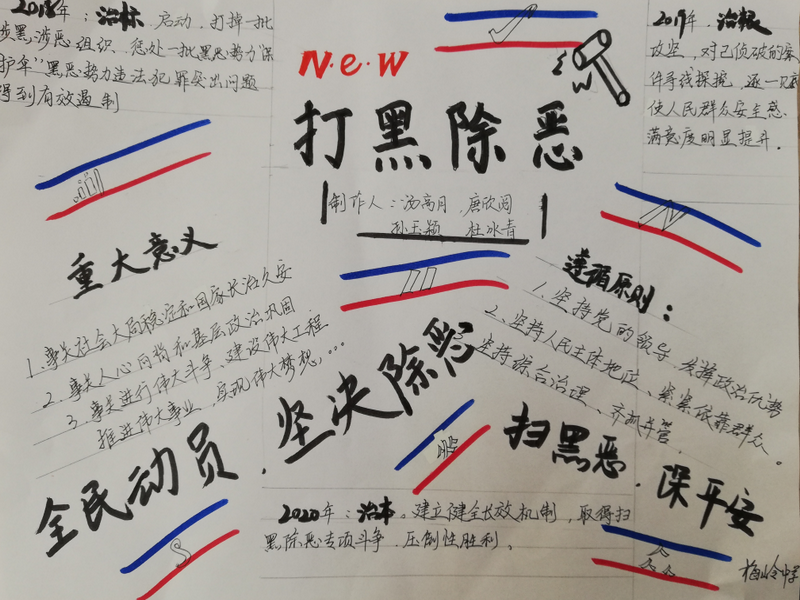 2018年：治标，启动，打掉一批
涉黑涉恶组织、惩处一批黑恶势力"保
护伞"黑恶势力违法犯罪突出问题
得到有效遏制
N·e·w
打黑除恶
制作人：汤高月 唐欣阅
孙玉颖 杜冰青
2019年，治根
攻坚，对已侦破的案
件寻线探挖，逐一见底
使人民群众安全感
满意度明显提升.
重大意义
1.事关社会大局稳定和国家长治久安
2.事关人心向背和基层政治巩固
3.事关进行伟大斗争、建设伟大工程
推进伟大事业，实现伟大梦想，...
遵循原则：
1.坚持党的领导、发挥政治优势
2.坚持人民主体地位、紧紧依靠群众。
坚持综合治理、齐抓共管。
全民动员.坚决除恶
扫黑恶.保平安
2020年：治本。建立健全长效机制，取得扫
黑除恶专项斗争，压倒性胜利。
梅岭中学